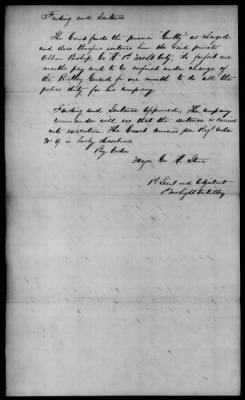 Finding and Sentence
The Court finds the prisoner "Guilty" as charged
and does therefore sentence him the said private
Bishop, Co. 1st To forfeit one
months pay and to be confined under charge of
the Battery Guard for one month to do all the
police duty for his company.
Finding and Sentence approved. The company
commander will see that the sentence is carried
into execution. The Court convened per Regt order
No 9 is hereby dissolved
By Order
Major Geo. A.
1st Lieut and Adjutant
1st Light Artillery